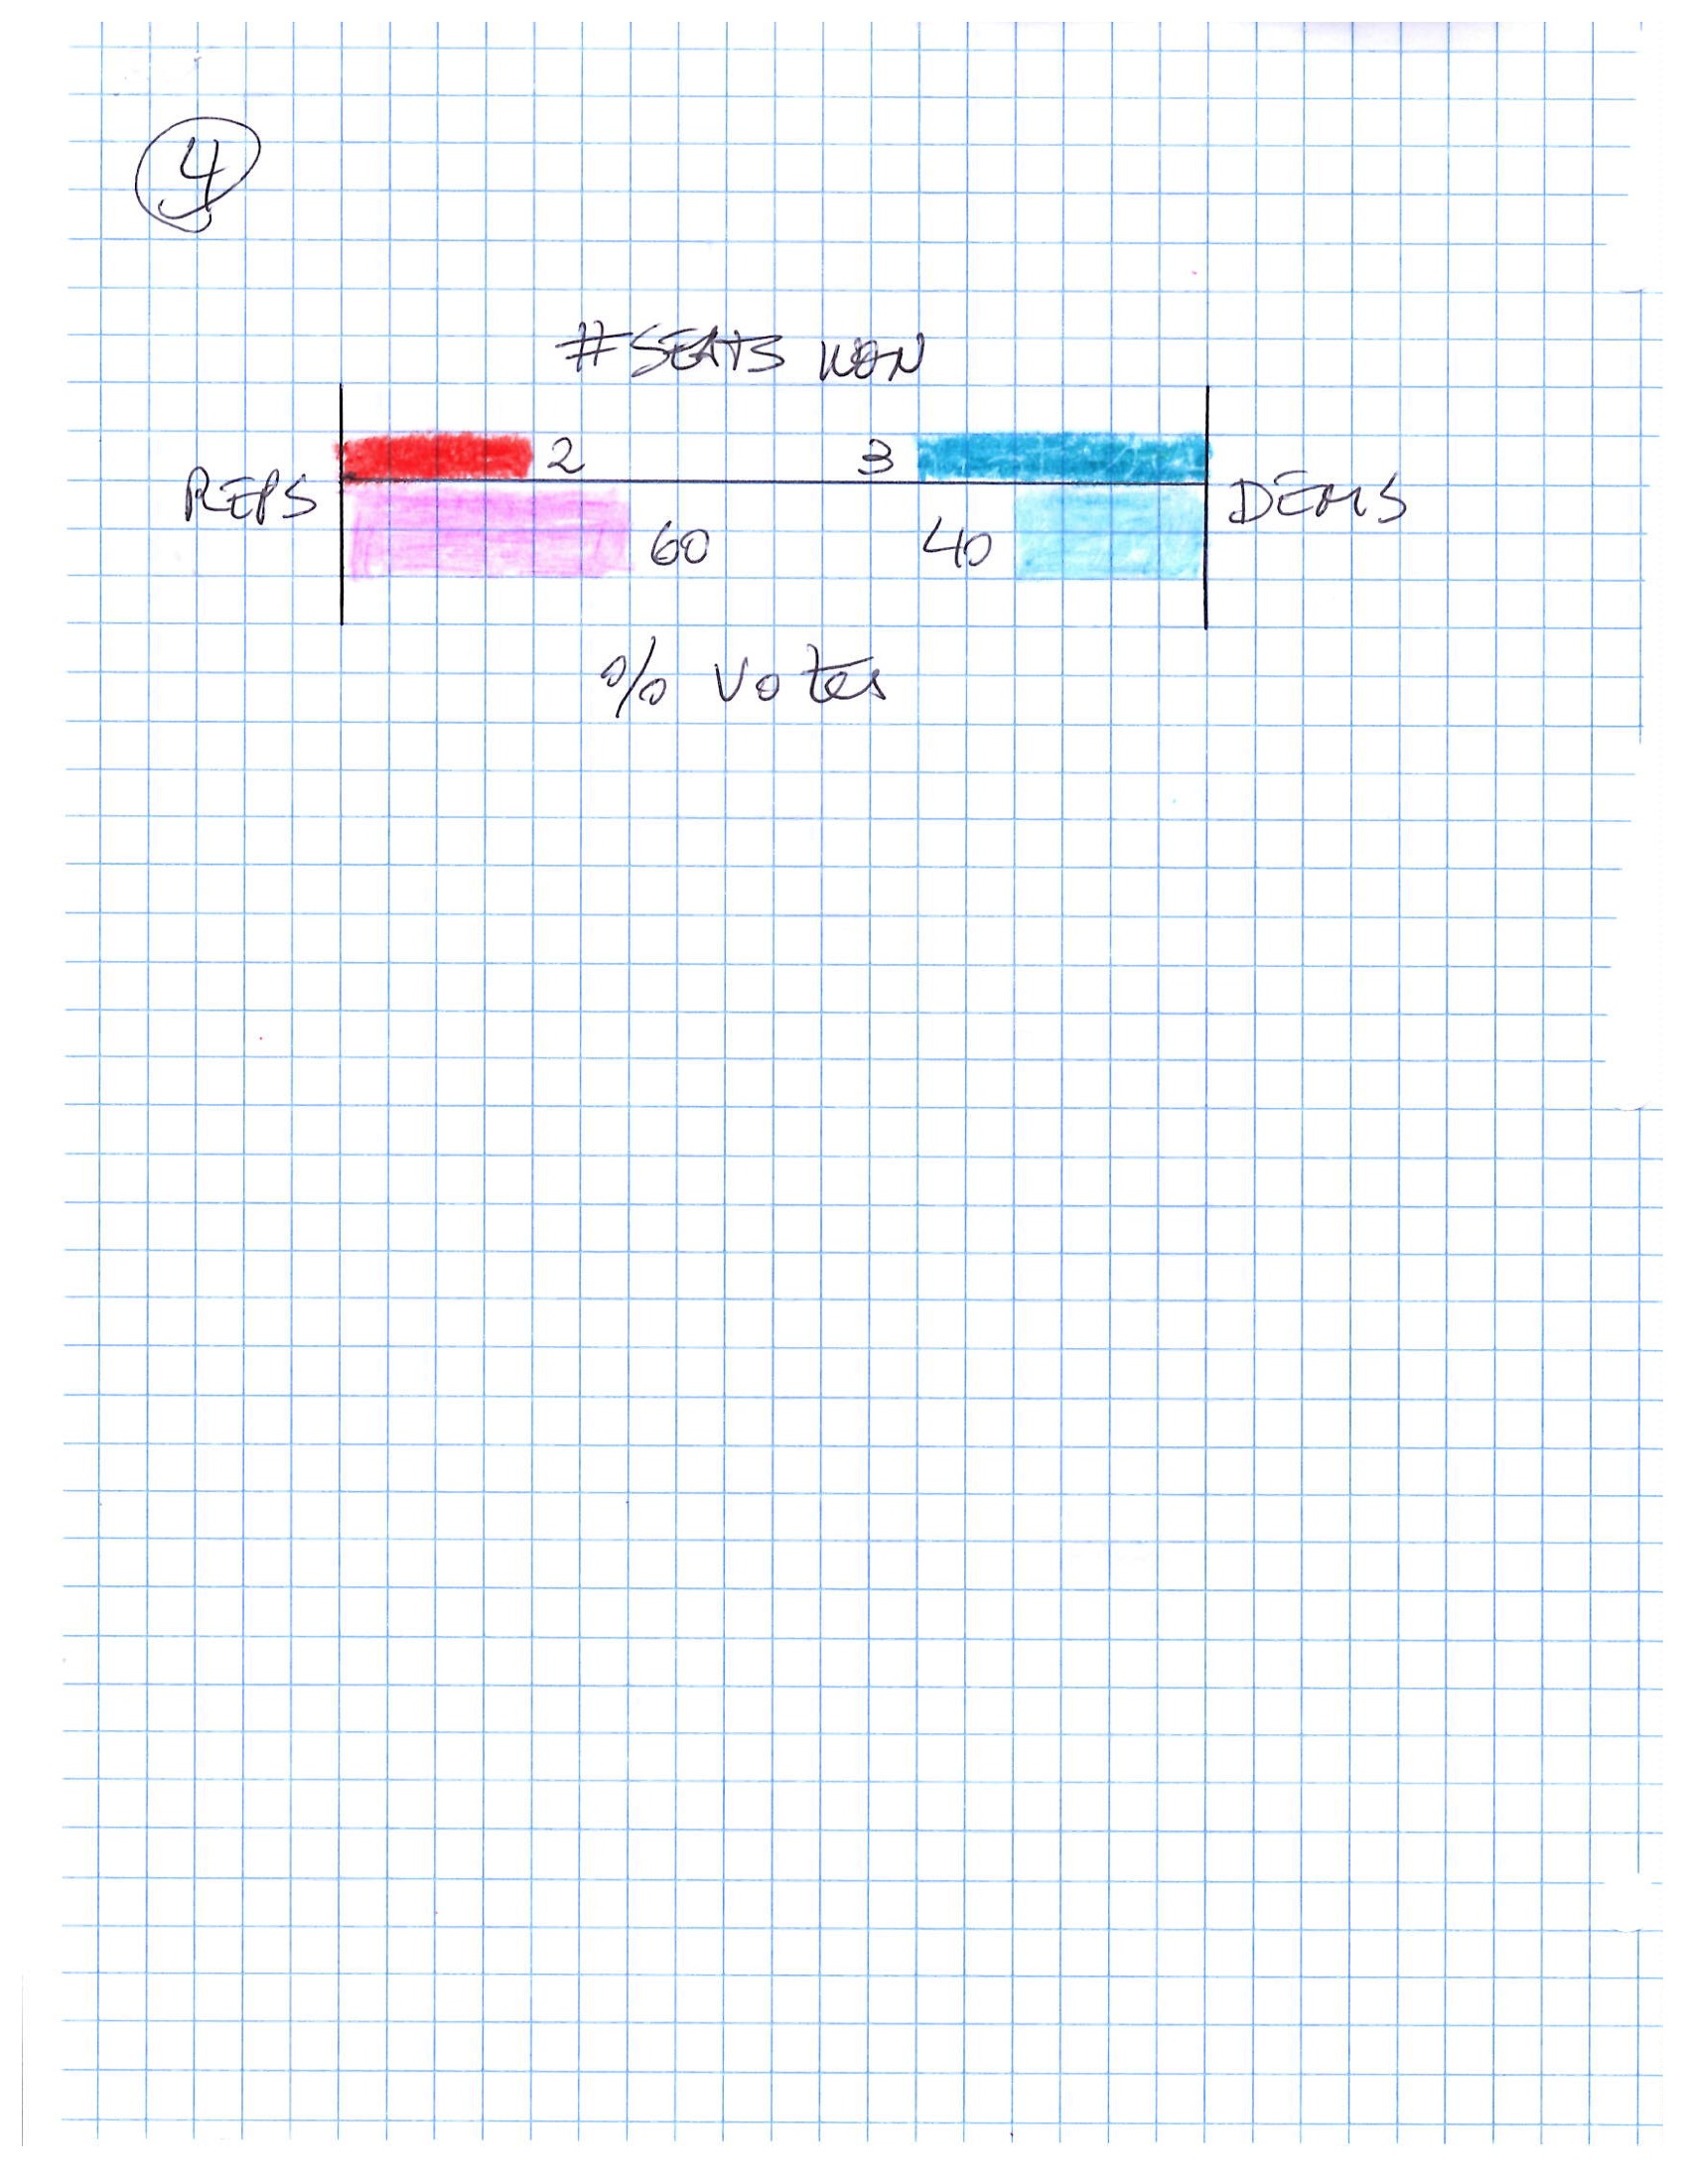 4
#SEATS WON
REPS 2 3 DEMS
60 40
% Votes